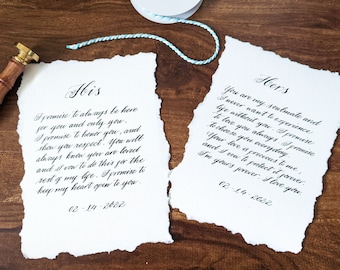 His
I promise to always be here
for you and only you.
I promise to honor you, and
show you respect. You will
always know you are loved
and I vow to do this for the
rest of my life. I promise to
keep my heart open to you
02-14-2022
Hers
You are my soulmate and
I never want to experience
life without you. I promise
to love you always. I promise
to choose you everyday.
Your love is precious to me,
and I vow to protect it forever.
I'm yours forever. I love you
02-14-2022